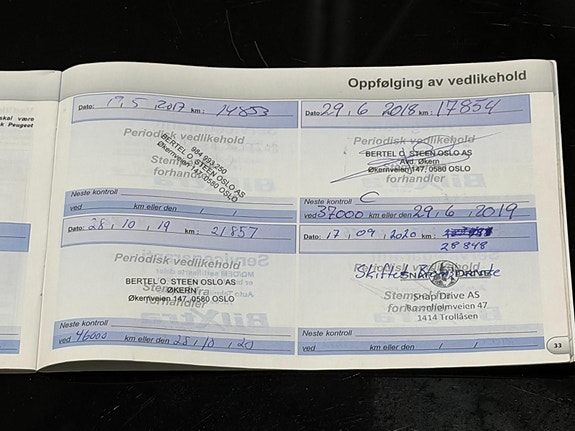 Oppfølging av vedlikehold
skal være
Peugeot
Dato: 17,5,2017 km: 14853
Periodisk vedlikehold
984 993 250
BERTEL O. STEEN OSLO AS
Økernveien 147, 0580 OSLO
forhandler
Neste kontroll
ved km eller den
Dato: 29,6 2018 km: 17854
Periodisk vedlikehold
BERTEL O. STEEN OSLO AS
Avd. Økern
Økernveien 147, 0580 OSLO
forhandler
Neste kontroll C
ved 37000 km eller den 29,6,2019
Dato: 28,10,19 km: 21857
Periodisk vedlikehold
BERTEL O. STEEN OSLO AS
ØKERN
Økernveien 147, 0580 OSLO
forhandler
Neste kontroll
ved 46000 km eller den 28,10,20
Dato: 17,09,2020 km:
28 848
Periodisk vedlikehold
Skiftet
SNAP DRIVE
Snap Drive AS
forhandler
1414 Trollåsen
Neste kontroll
ved km eller den
33